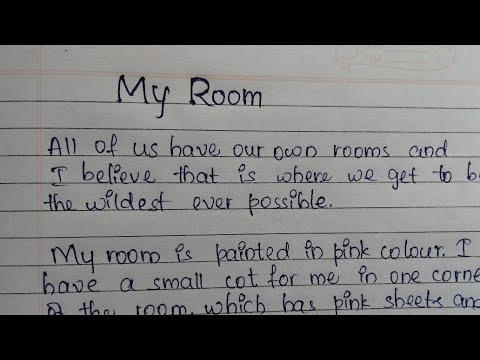 My Room
All of us have our own rooms and
I believe that is where we get to b
the wildest ever possible.
My room is painted in pink colour. I
have a small cot for me in one corne
of the room, which has pink sheets and